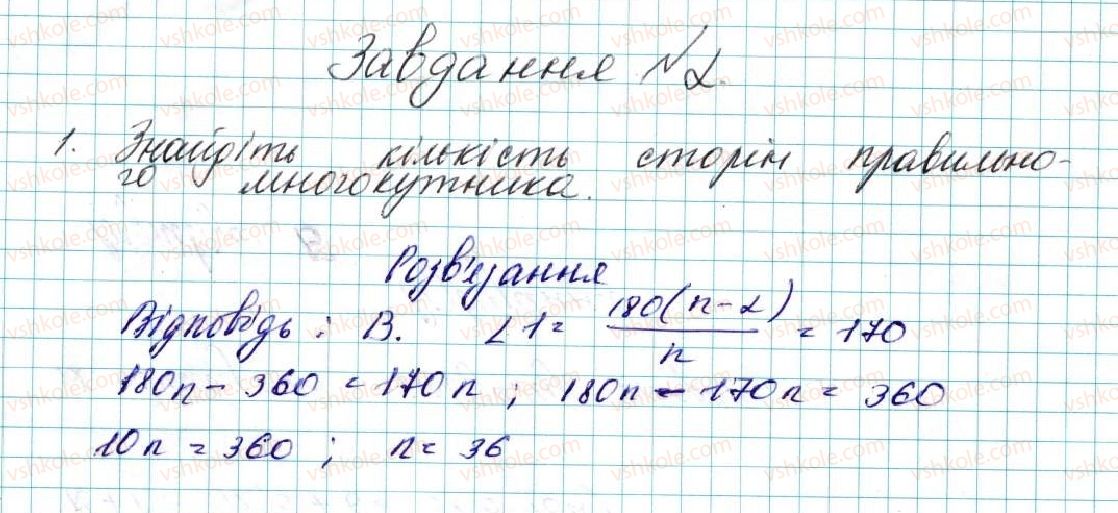 Завдання №2.
1. Знайдіть кількість сторін правильно-
го многокутника.
Розв'язання
Відповідь: В. ∠1 = 180(n-2)/n = 170
180n - 360 = 170n ; 180n - 170n = 360
10n = 360 ; n = 36